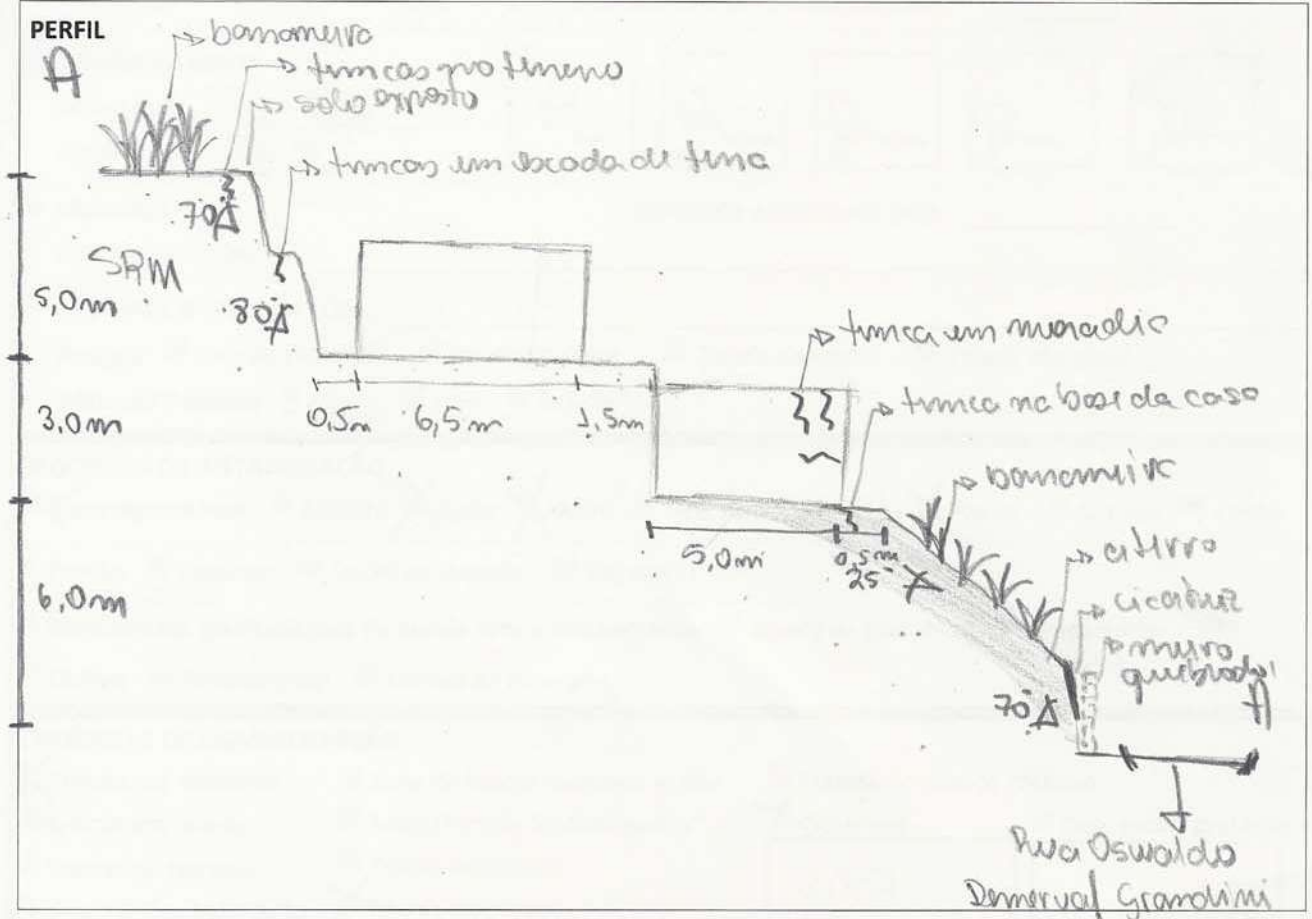 PERFIL
A
bananeira
trincas no terreno
solo exposto
trincas em escada de terra
70°
SRM
5,0m
80°
trinca em moradia
3,0m
0,5m 6,5m 1,5m
trinca na base da casa
bananeira
5,0m
0,5m
25°
aterro
6,0m
cicatriz
muro
quebrado
70°
A'
Rua Oswaldo
Demerval Grandini